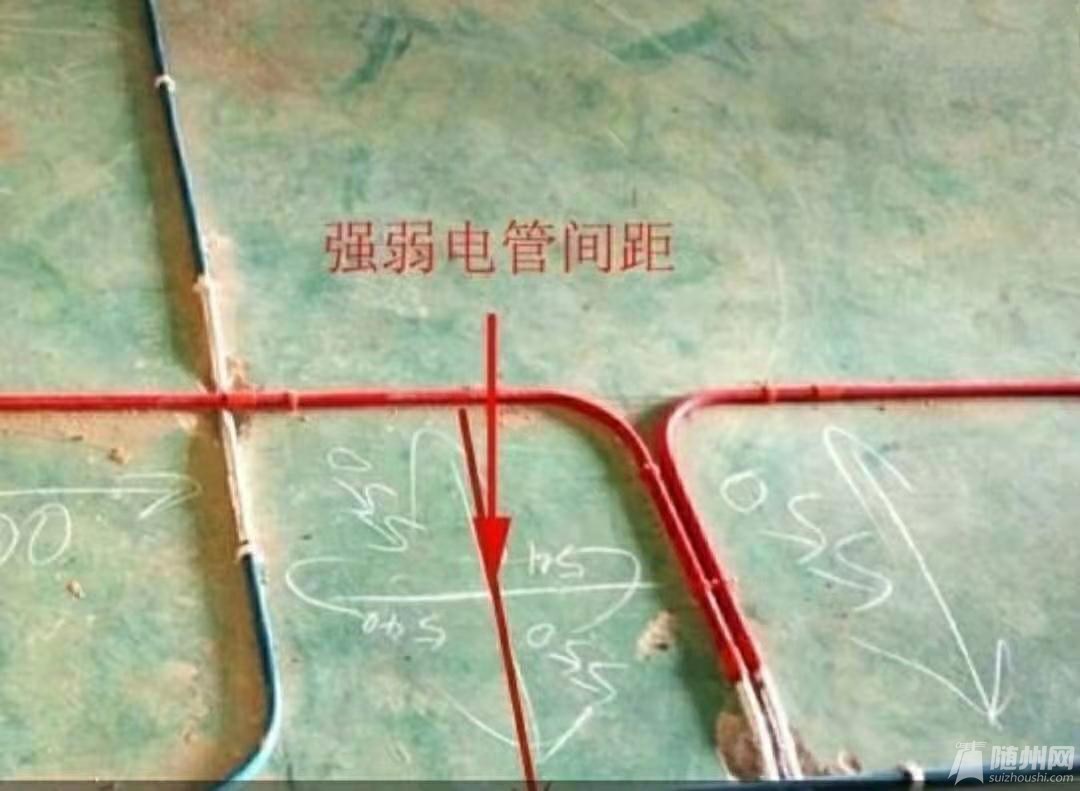 强弱电管间距
550
550
541
540
550
00
随州网
suizhoushi.com